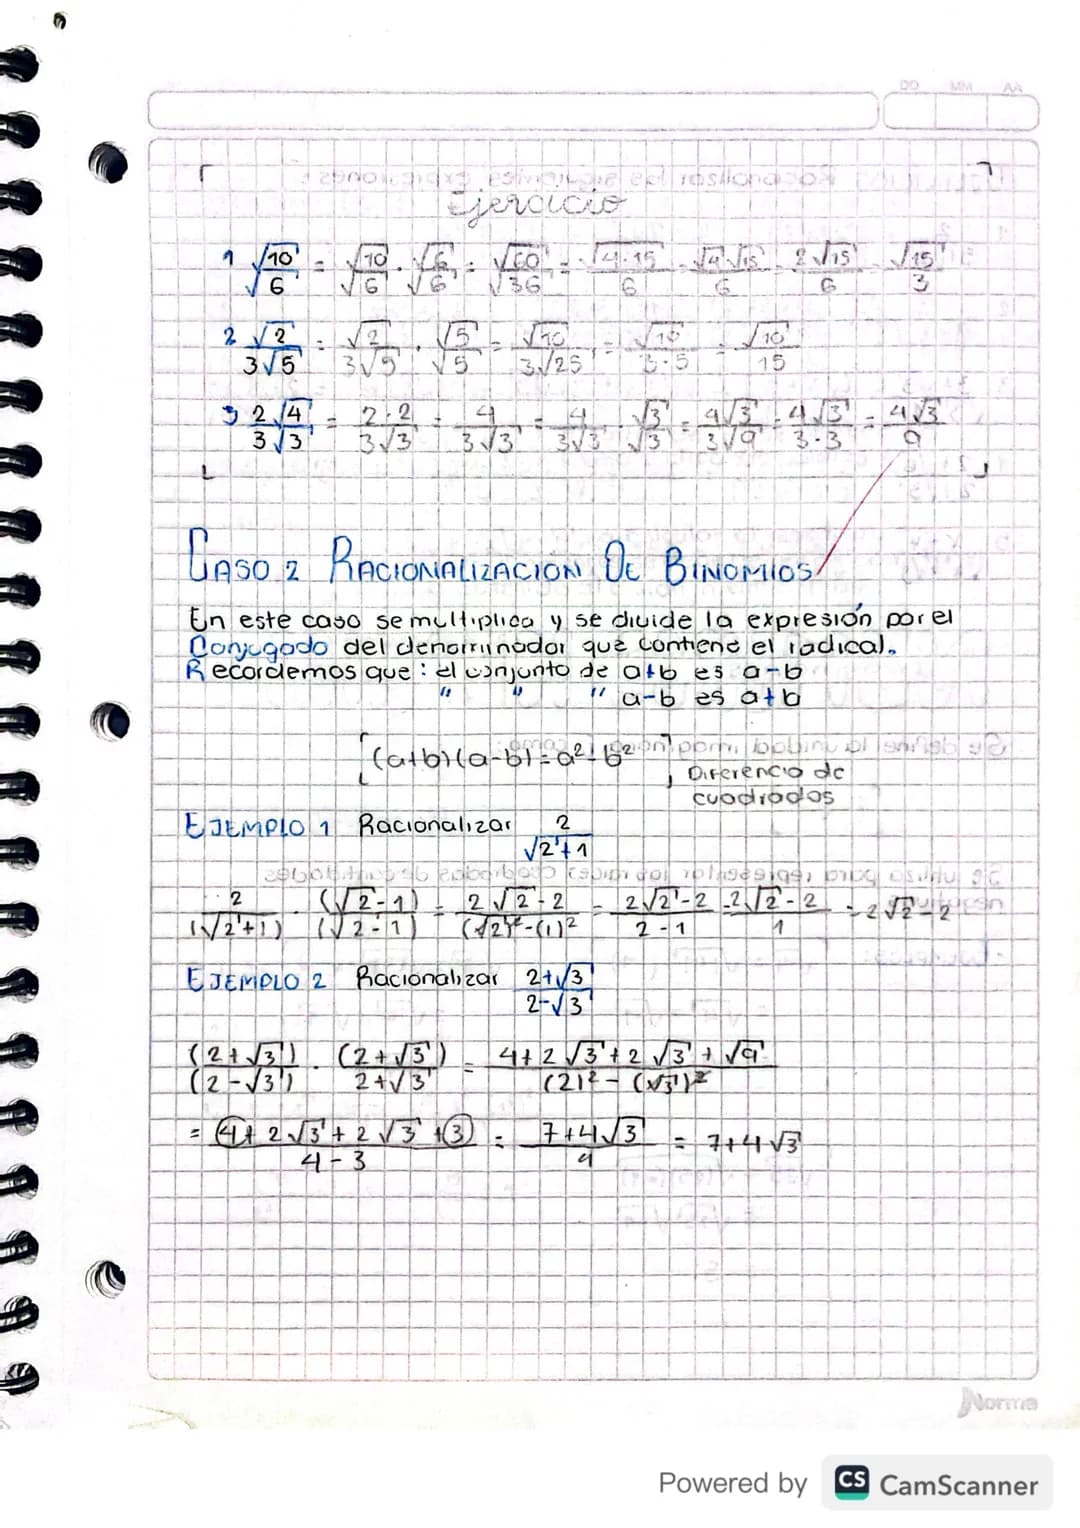 DD MM AA
Ejercicio
1 √10/√6 = √10/√6 · √6/√6 = √60/√36 = √4·15/6 = √4√15/6 = 2√15/6 = √15/3
2 √2/3√5 = √2/3√5 · √5/√5 = √10/3√25 = √10/3·5 = √10/15
3 2√4/3√3 = 2·2/3√3 = 4/3√3 = 4/3√3 · √3/√3 = 4√3/3√9 = 4√3/3·3 = 4√3/9
CASO 2 RACIONALIZACION DE BINOMIOS
En este caso se multiplica y se divide la expresión por el
Conjugado del denominador que contiene el radical.
Recordemos que: el conjunto de a+b es a-b
" " " a-b es a+b
[(a+b)(a-b) = a²-b²]
Diferencia de
cuadrados
EJEMPLO 1 Racionalizar 2/√2+1
2/(√2+1) · (√2-1)/(√2-1) = 2√2-2/(√2)²-(1)² = 2√2-2/2-1 = 2√2-2/1 = 2√2-2
EJEMPLO 2 Racionalizar 2+√3/2-√3
(2+√3)/(2-√3) · (2+√3)/2+√3 = 4+2√3+2√3+√9/(2)²-(√3)²
= 4+2√3+2√3+3/4-3 = 7+4√3/1 = 7+4√3
Norma
Powered by CS CamScanner